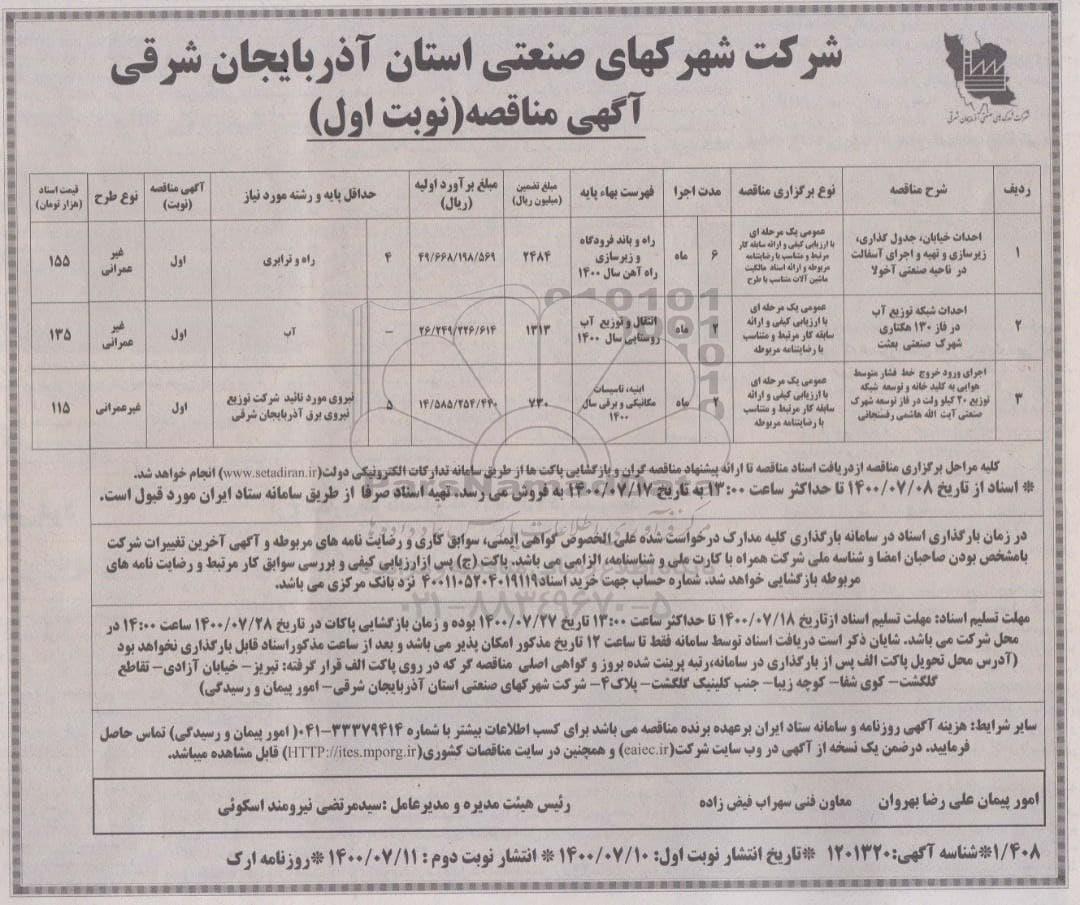 شرکت شهرکهای صنعتی استان آذربایجان شرقی
آگهی مناقصه(نوبت اول)
شرکت شهرک های صنعتی آذربایجان شرقی
ردیف
شرح مناقصه
نوع برگزاری مناقصه
مدت اجرا
فهرست بهاء پایه
مبلغ تضمین
(میلیون ریال)
مبلغ برآورد اولیه
(ریال)
حداقل پایه و رشته مورد نیاز
آگهی مناقصه
(نوبت)
نوع طرح
قیمت اسناد
(هزار تومان)
۱
احداث خیابان، جدول گذاری،
زیرسازی و تهیه و اجرای آسفالت
در ناحیه صنعتی آخولا
عمومی یک مرحله ای
با ارزیابی کیفی و ارائه سابقه کار
مرتبط و متناسب با رضایتنامه
مربوطه و ارائه اسناد مالکیت
ماشین آلات متناسب با طرح
۶
ماه
راه و باند فرودگاه
و زیرسازی
راه آهن سال ۱۴۰۰
۲۴۸۴
۴۹/۶۶۸/۱۹۸/۵۶۹
۴
راه و ترابری
اول
غیر
عمرانی
۱۵۵
۲
احداث شبکه توزیع آب
در فاز ۱۳۰ هکتاری
شهرک صنعتی بعثت
عمومی یک مرحله ای
با ارزیابی کیفی و ارائه
سابقه کار مرتبط و متناسب
با رضایتنامه مربوطه
۲
ماه
انتقال و توزیع آب
روستایی سال ۱۴۰۰
۱۳۱۳
۲۶/۲۴۹/۲۲۶/۶۱۴
–
آب
اول
غیر
عمرانی
۱۳۵
۳
اجرای ورود خروج خط فشار متوسط
هوایی به کلید خانه و توسعه شبکه
توزیع ۲۰ کیلو ولت در فاز توسعه شهرک
صنعتی آیت الله هاشمی رفسنجانی
عمومی یک مرحله ای
با ارزیابی کیفی و ارائه
سابقه کار مرتبط و متناسب
با رضایتنامه مربوطه
۲
ماه
ابنیه، تاسیسات
مکانیکی و برقی سال
۱۴۰۰
۷۳۰
۱۴/۵۸۵/۲۵۴/۴۴۰
۵
نیروی مورد تائید شرکت توزیع
نیروی برق آذربایجان شرقی
اول
غیرعمرانی
۱۱۵
کلیه مراحل برگزاری مناقصه ازدریافت اسناد مناقصه تا ارائه پیشنهاد مناقصه گران و بازگشایی پاکت ها از طریق سامانه تدارکات الکترونیکی دولت(www.setadiran.ir) انجام خواهد شد.
* اسناد از تاریخ ۱۴۰۰/۰۷/۰۸ تا حداکثر ساعت ۱۳:۰۰ به تاریخ ۱۴۰۰/۰۷/۱۷ به فروش می رسد. تهیه اسناد صرفا از طریق سامانه ستاد ایران مورد قبول است.
ParsNamadData
مرکز فرآوری اطلاعات پارس نماد داده ها
در زمان بارگذاری اسناد در سامانه بارگذاری کلیه مدارک درخواست شده علی الخصوص گواهی ایمنی، سوابق کاری و رضایت نامه های مربوطه و آگهی آخرین تغییرات شرکت
بامشخص بودن صاحبان امضا و شناسه ملی شرکت همراه با کارت ملی و شناسنامه، الزامی می باشد. پاکت (ج) پس ازارزیابی کیفی و بررسی سوابق کار مرتبط و رضایت نامه های
مربوطه بازگشایی خواهد شد. شماره حساب جهت خرید اسناد۴۰۰۱۱۰۵۲۰۴۰۱۹۱۱۹ نزد بانک مرکزی می باشد.
۰۲۱-۸۸۳۴۹۶۷۰-۵
مهلت تسلیم اسناد: مهلت تسلیم اسناد ازتاریخ ۱۴۰۰/۰۷/۱۸ تا حداکثر ساعت ۱۳:۰۰ تاریخ ۱۴۰۰/۰۷/۲۷ بوده و زمان بازگشایی پاکات در تاریخ ۱۴۰۰/۰۷/۲۸ ساعت ۱۴:۰۰ در
محل شرکت می باشد. شایان ذکر است دریافت اسناد توسط سامانه فقط تا ساعت ۱۲ تاریخ مذکور امکان پذیر می باشد و بعد از ساعت مذکوراسناد قابل بارگذاری نخواهد بود
(آدرس محل تحویل پاکت الف پس از بارگذاری در سامانه،رتبه پرینت شده بروز و گواهی اصلی مناقصه گر که در روی پاکت الف قرار گرفته: تبریز– خیابان آزادی– تقاطع
گلگشت– کوی شفا– کوچه زیبا– جنب کلینیک گلگشت– پلاک۴– شرکت شهرکهای صنعتی استان آذربایجان شرقی– امور پیمان و رسیدگی)
سایر شرایط: هزینه آگهی روزنامه و سامانه ستاد ایران برعهده برنده مناقصه می باشد برای کسب اطلاعات بیشتر با شماره ۳۳۳۷۹۴۱۴–۰۴۱( امور پیمان و رسیدگی) تماس حاصل
فرمایید. درضمن یک نسخه از آگهی در وب سایت شرکت(eaiec.ir) و همچنین در سایت مناقصات کشوری(HTTP://ites.mporg.ir) قابل مشاهده میباشد.
امور پیمان علی رضا بهروان معاون فنی سهراب فیض زاده رئیس هیئت مدیره و مدیرعامل :سیدمرتضی نیرومند اسکوئی
۱/۴۰۸*شناسه آگهی:۱۲۰۱۳۲۰ *تاریخ انتشار نوبت اول: ۱۴۰۰/۰۷/۱۰ * انتشار نوبت دوم : ۱۴۰۰/۰۷/۱۱ *روزنامه ارک